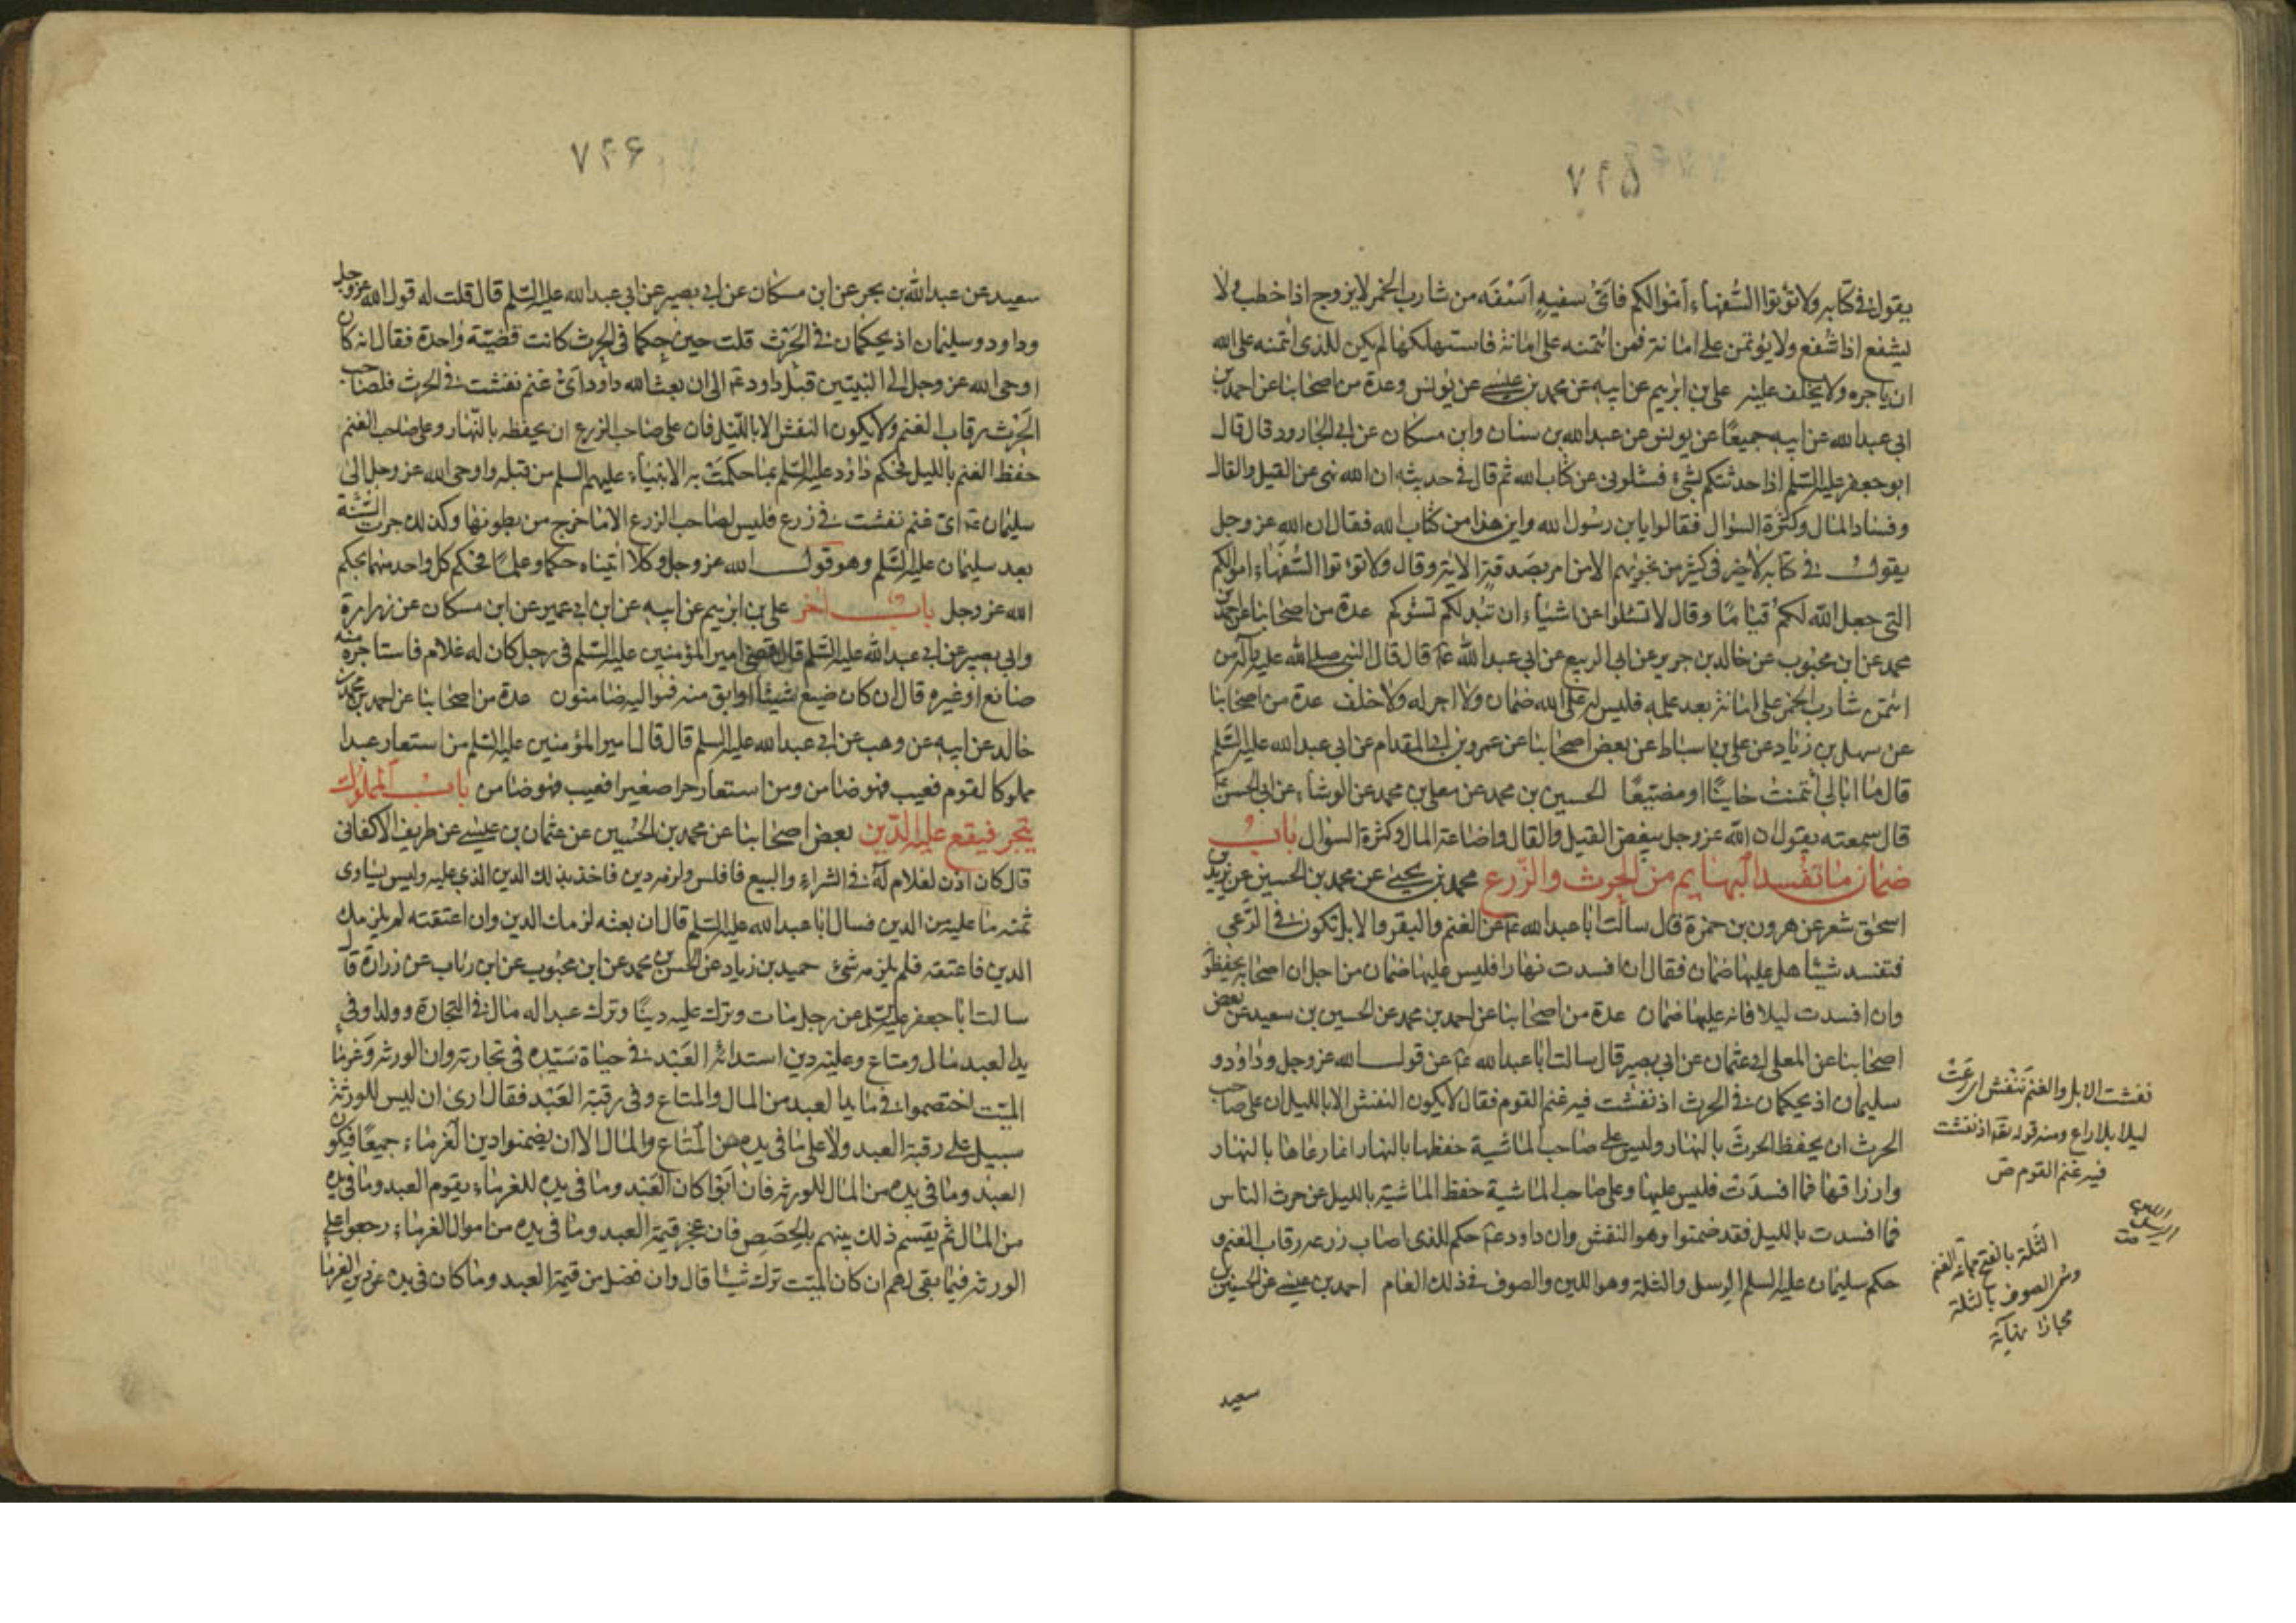 ٧٢۵
يقول في كتابه ولا تؤتوا السفهاء أموالكم فاىّ سفيهٍ اَسْفَه من شارب الخمر لا يزوج اذا خطب ولا
يشفع اذا شفع ولا يؤتمن على امانة فمن ائتمنه على امانة فاستهلكها لم يكن للذى ائتمنه على الله
ان ياجره ولا يخلف عليه علي بن ابرهيم عن ابيه عن محمد بن عيسى عن يونس وعدة من اصحابنا عن احمد بن
ابي عبد الله عن ابيه جميعًا عن يونس عن عبد الله بن سنان وابن مسكان عن ابي الجارود قال قال
ابو جعفر عليه السلم اذا حدثتكم بشئ فسئلوني عن كتاب الله ثم قال في حديثه ان الله نهى عن القيل والقال
وفساد المال وكثرة السؤال فقالوا يابن رسول الله واين هذا من كتاب الله فقال ان الله عز وجل
يقول في كتابه لا خير في كثير من نجويهم الا من امر بصدقة الاية وقال ولا تؤتوا السفهاء اموالكم
التي جعل الله لكم قيامًا وقال لا تسئلوا عن اشياء ان تبد لكم تسؤكم عدة من اصحابنا عن احمد بن
محمد عن ابن محبوب عن خالد بن جرير عن ابى الربيع عن ابي عبد الله ع قال قال النبي صلى الله عليه وآله من
ائتمن شارب الخمر على امانة بعد علمه فليس له على الله ضمان ولا اجر له ولا خلف عدة من اصحابنا
عن سهل بن زياد عن علي بن اسباط عن بعض اصحابنا عن عمرو بن ابي المقدام عن ابي عبد الله عليه السلم
قال ما ابالي ائتمنت خاينًا او مضيّعًا الحسين بن محمد عن معلى بن محمد عن الوشاء عن ابي الحسن ع
قال سمعته يقول ان الله عز وجل يبغض القيل والقال واضاعة المال وكثرة السؤال باب
ضمان ما تفسد البهايم من الحرث والزرع محمد بن يحيى عن محمد بن الحسين عن يزيد بن
اسحق شعر عن هرون بن حمزة قال سالت ابا عبد الله ع عن الغنم والبقر والابل تكون في الرعى
فتفسد شيئا هل عليها ضمان فقال ان افسدت نهارا فليس عليها ضمان من اجل ان اصحابه يحفظونه
وان افسدت ليلا فانه عليها ضمان عدة من اصحابنا عن احمد بن محمد عن الحسين بن سعيد عن بعض
اصحابنا عن المعلى ابي عثمان عن ابي بصير قال سالت ابا عبد الله ع عن قول الله عز وجل وداود و
سليمان اذ يحكمان في الحرث اذ نفشت فيه غنم القوم فقال لا يكون النفش الا بالليل ان على صاحب
الحرث ان يحفظ الحرث بالنهار وليس على صاحب الماشية حفظها بالنهار انما رعاها بالنهار
وارزاقها فما افسدت فليس عليها وعلى صاحب الماشية حفظ الماشية بالليل عن حرث الناس
فما افسدت بالليل فقد ضمنوا وهو النفش وان داود ع حكم للذى اصاب زرعه رقاب الغنم و
حكم سليمان عليه السلم الرسل والثلة وهو اللبن والصوف في ذلك العام احمد بن عيسى عن الحسين بن
نفشت الابل والغنم تنفش اى رعت
ليلا بلا راع ومنه قوله تع اذ نفشت
فيه غنم القوم ص
الثلة بالفتح جماعة الغنم
وسمى الصوف بالثلة
مجازا نهاية
سعيد
٧٢۶
سعيد عن عبد الله بن بحر عن ابن مسكان عن ابي بصير عن ابي عبد الله عليه السلم قال قلت له قول الله عز وجل
وداود وسليمان اذ يحكمان في الحرث قلت حين حكما في الحرث كانت قضيّة واحدة فقال انه كان
اوحى الله عز وجل الى النبيّين قبل داود ع الى ان بعث الله داود اىّ غنم نفشت في الحرث فلصاحب
الحرث رقاب الغنم ولا يكون النفش الا بالليل فان على صاحب الزرع ان يحفظه بالنّهار وعلى صاحب الغنم
حفظ الغنم بالليل فحكم داود عليه السلم بما حكمت به الانبياء عليهم السلم من قبله واوحى الله عز وجل الى
سليمان ع اىّ غنم نفشت في زرع فليس لصاحب الزرع الا ما خرج من بطونها وكذلك جرت السّنة
بعد سليمان عليه السلم وهو قول الله عز وجل وكلا اتيناه حكما وعلمًا فحكم كل واحد منهما بحكم
الله عز وجل باب آخر علي بن ابرهيم عن ابيه عن ابن ابي عمير عن ابن مسكان عن زرارة
وابي بصير عن ابي عبد الله عليه السلم قال قضى امير المؤمنين عليه السلم في رجل كان له غلام فاستاجره منه
صانع او غيره قال ان كان ضيع شيئا او ابق منه فمواليه ضامنون عدة من اصحابنا عن احمد بن محمد بن
خالد عن ابيه عن وهب عن ابي عبد الله عليه السلم قال قال امير المؤمنين عليه السلم من استعار عبدا
مملوكا لقوم فعيب فهو ضامن ومن استعار حرا صغيرا فعيب فهو ضامن باب المملوك
يتجر فيقع عليه الدّين بعض اصحابنا عن محمد بن الحسين عن عثمان بن عيسى عن ظريف الاكفانى
قال كان اذن لغلام له في الشراء والبيع فافلس ولزمه دين فاخذ بذلك الدين الذي عليه وليس يساوى
ثمنه ما عليه من الدين فسال ابا عبد الله عليه السلم قال ان بعثه لزمك الدين وان اعتقته لم يلزمك
الدين فاعتقه فلم يلزمه شئ حميد بن زياد عن الحسن بن محمد عن ابن محبوب عن ابن رئاب عن زرارة قال
سالت ابا جعفر عليه السلم عن رجل مات وترك عليه دينًا وترك عبدا له مال في التجارة وولدا وفي
يد العبد مال ومتاع وعليه دين استدانه العبد في حياة سيّده في تجارته وان الورثة وغرما
الميّت اختصموا في ما بيد العبد من المال والمتاع وفي رقبة العبد فقال ارى ان ليس للورثة
سبيل على رقبة العبد ولا على ما في يده من المتاع والمال الا ان يضمنوا دين الغرماء جميعًا فيكون
العبد وما في يده من المال للورثة فان ابوا كان العبد وما في يده للغرماء يقوم العبد وما في يده
من المال ثم يقسم ذلك بينهم بالحصص فان عجز قيمة العبد وما في يده من اموال الغرماء رجعوا على
الورثة فيما بقي لهم ان كان الميّت ترك شيئا قال وان فضل من قيمة العبد وما كان في يده عن دين الغرماء